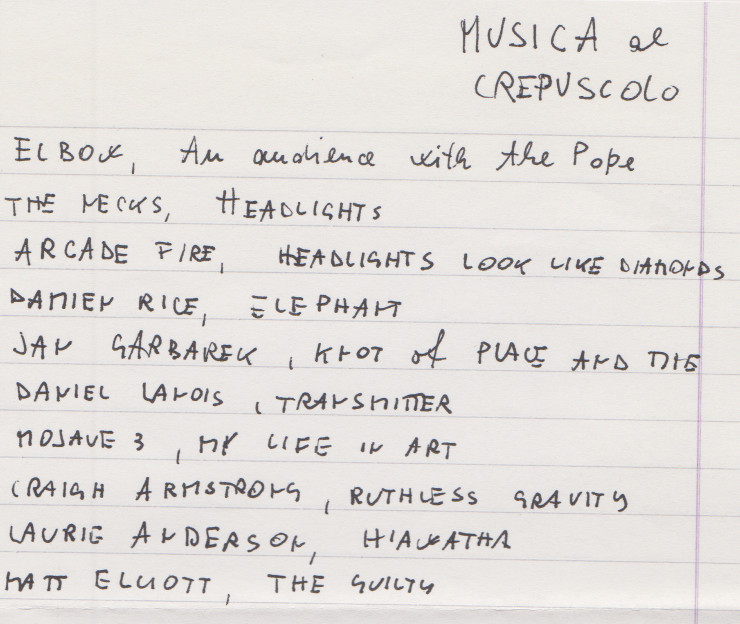 MUSICA al
CREPUSCOLO
ELBOW, An audience with the Pope
THE NECKS, HEADLIGHTS
ARCADE FIRE, HEADLIGHTS LOOK LIKE DIAMONDS
DAMIEN RICE, ELEPHANT
JAN GARBAREK, KNOT of PLACE AND TIME
DANIEL LANOIS, TRANSMITTER
MOJAVE 3, MY LIFE IN ART
CRAIGH ARMSTRONG, RUTHLESS GRAVITY
LAURIE ANDERSON, HIAWATHA
MATT ELLIOTT, THE GUILTY